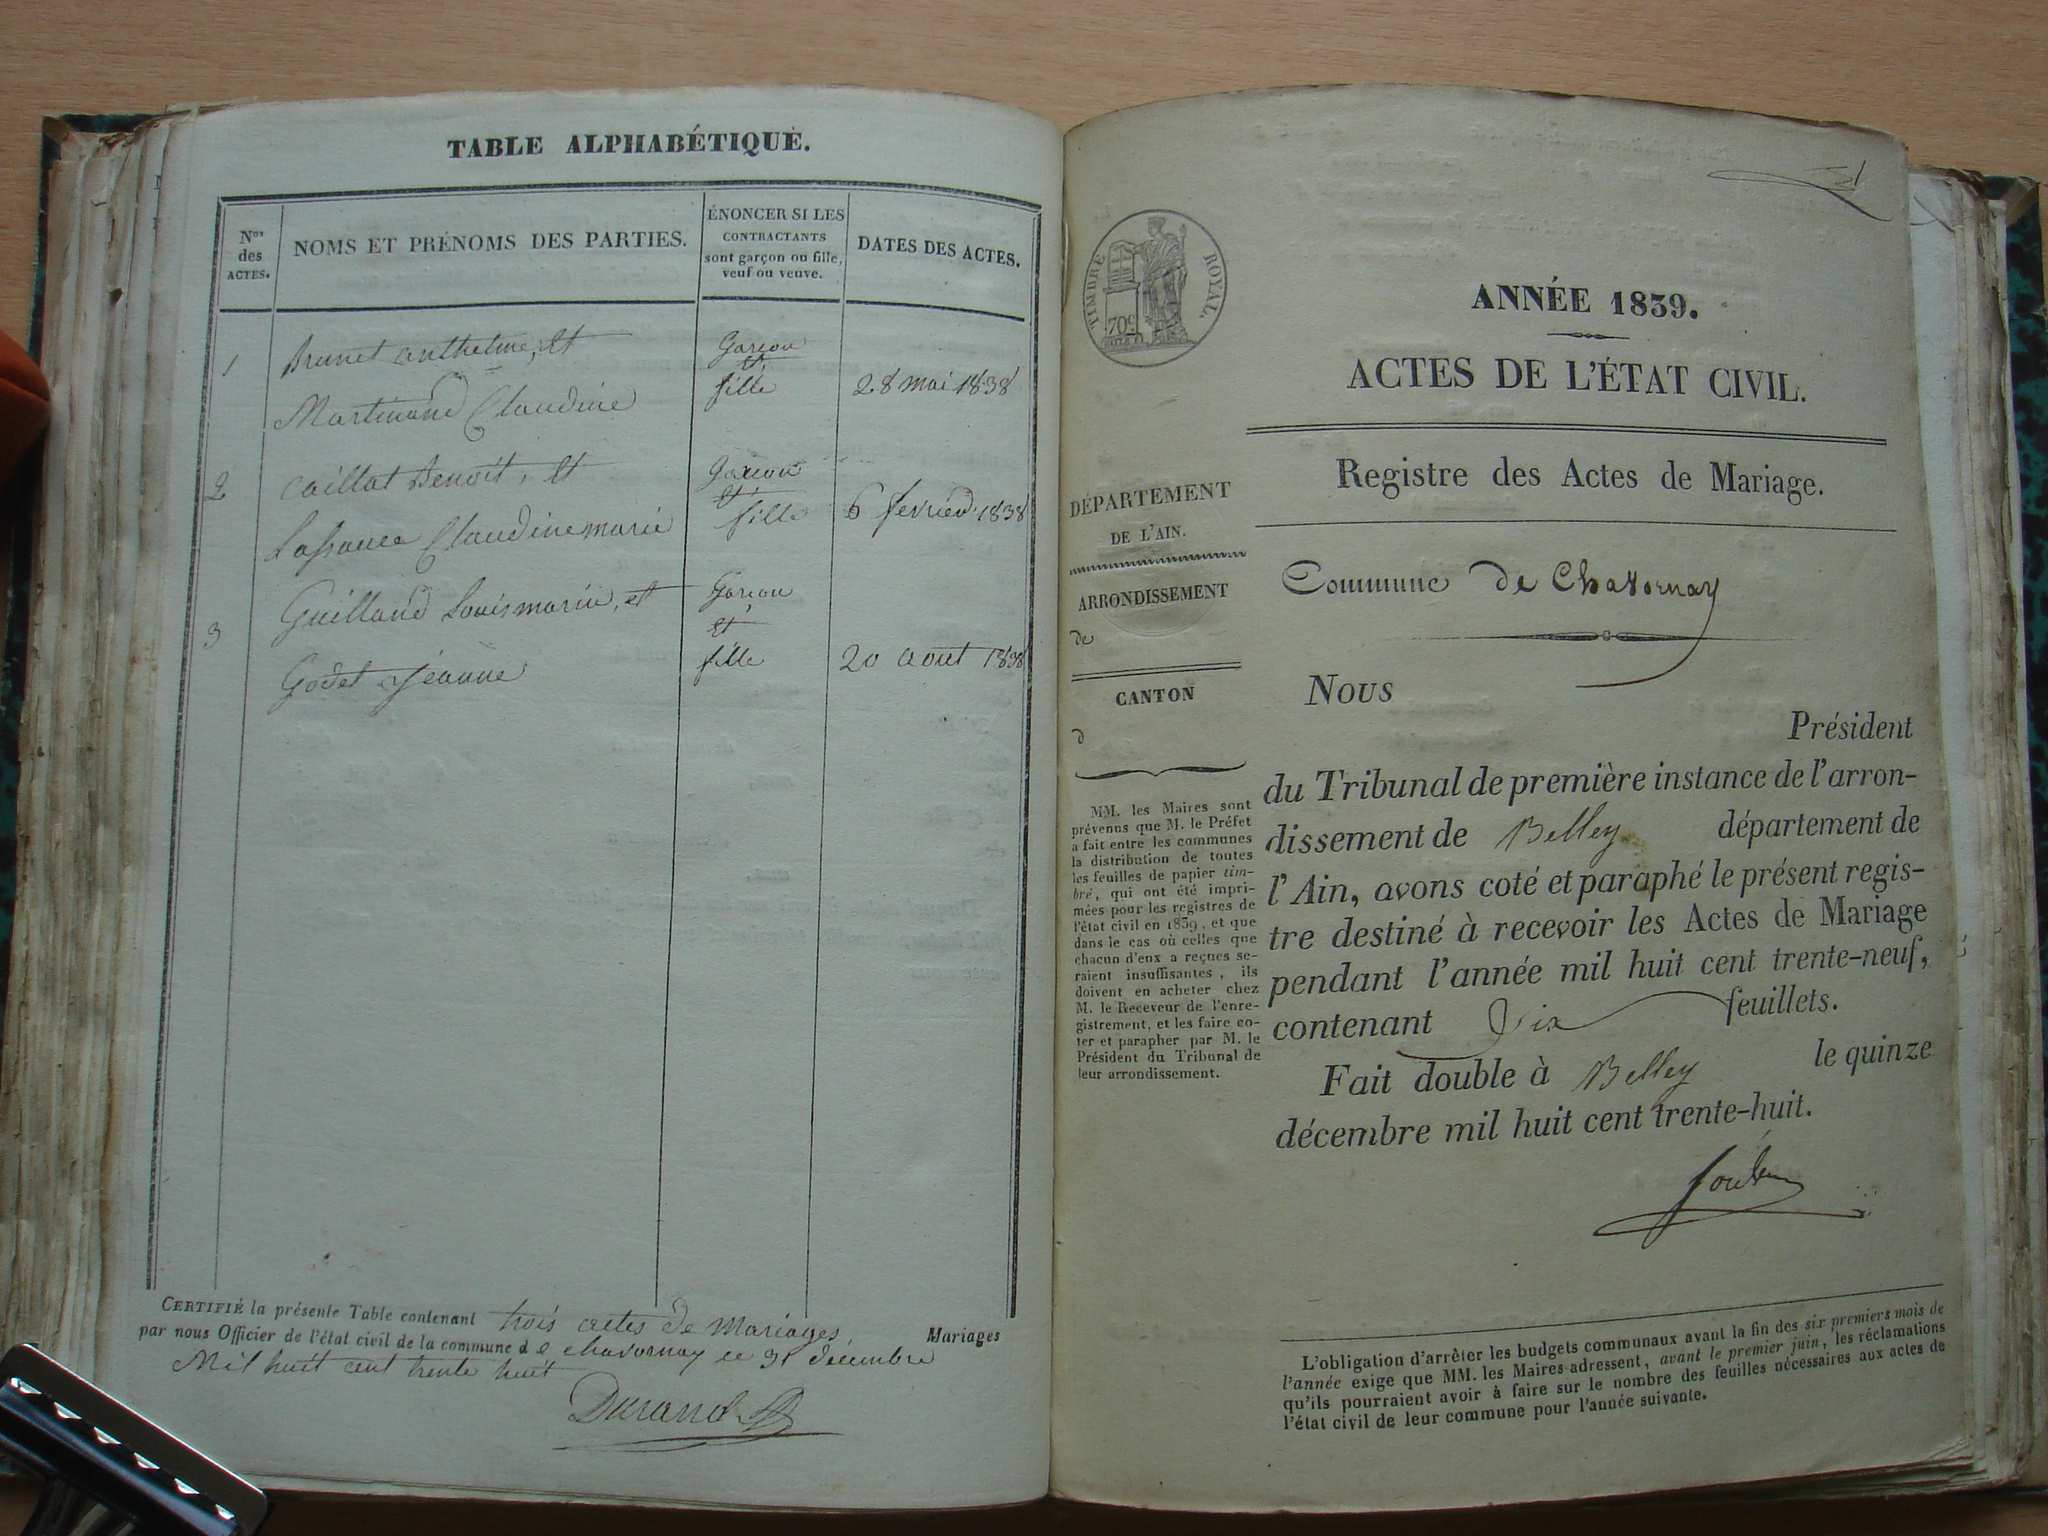 TABLE ALPHABÉTIQUE.
Nos des ACTES.
NOMS ET PRÉNOMS DES PARTIES.
ÉNONCER SI LES
CONTRACTANTS
sont garçon ou fille,
veuf ou veuve.
DATES DES ACTES.
1 Brunet anthelme, et Garcon et
Martinand Claudine fille 28 mai 1838
2 Caillat Benoit, et Garcon et
Claudine marie fille 6 fevrier 1838
3 Guilland Louis marie, et Garcon et
Godet Jeanne fille 20 aout 1838
CERTIFIÉ la présente Table contenant trois actes de Mariages, Mariages
par nous Officier de l'état civil de la commune de chavornay ce 31 decembre
Mil huit cent trente huit
Durand
TIMBRE ROYAL.
70c
ANNÉE 1839.
ACTES DE L'ÉTAT CIVIL.
Registre des Actes de Mariage.
DÉPARTEMENT
DE L'AIN.
ARRONDISSEMENT
de
CANTON
d
MM. les Maires sont
prévenus que M. le Préfet
a fait entre les communes
la distribution de toutes
les feuilles de papier tim-
bré, qui ont été impri-
mées pour les registres de
l'état civil en 1839, et que
dans le cas où celles que
chacun d'eux a reçues se-
raient insuffisantes, ils
doivent en acheter chez
M. le Receveur de l'enre-
gistrement, et les faire co-
ter et parapher par M. le
Président du Tribunal de
leur arrondissement.
Commune de Chavornay
Nous
Président
du Tribunal de première instance de l'arron-
dissement de Belley département de
l'Ain, avons coté et paraphé le présent regis-
tre destiné à recevoir les Actes de Mariage
pendant l'année mil huit cent trente-neuf,
contenant feuillets.
Fait double à Belley le quinze
décembre mil huit cent trente-huit.
L'obligation d'arrêter les budgets communaux avant la fin des six premiers mois de
l'année exige que MM. les Maires adressent, avant le premier juin, les réclamations
qu'ils pourraient avoir à faire sur le nombre des feuilles nécessaires aux actes de
l'état civil de leur commune pour l'année suivante.